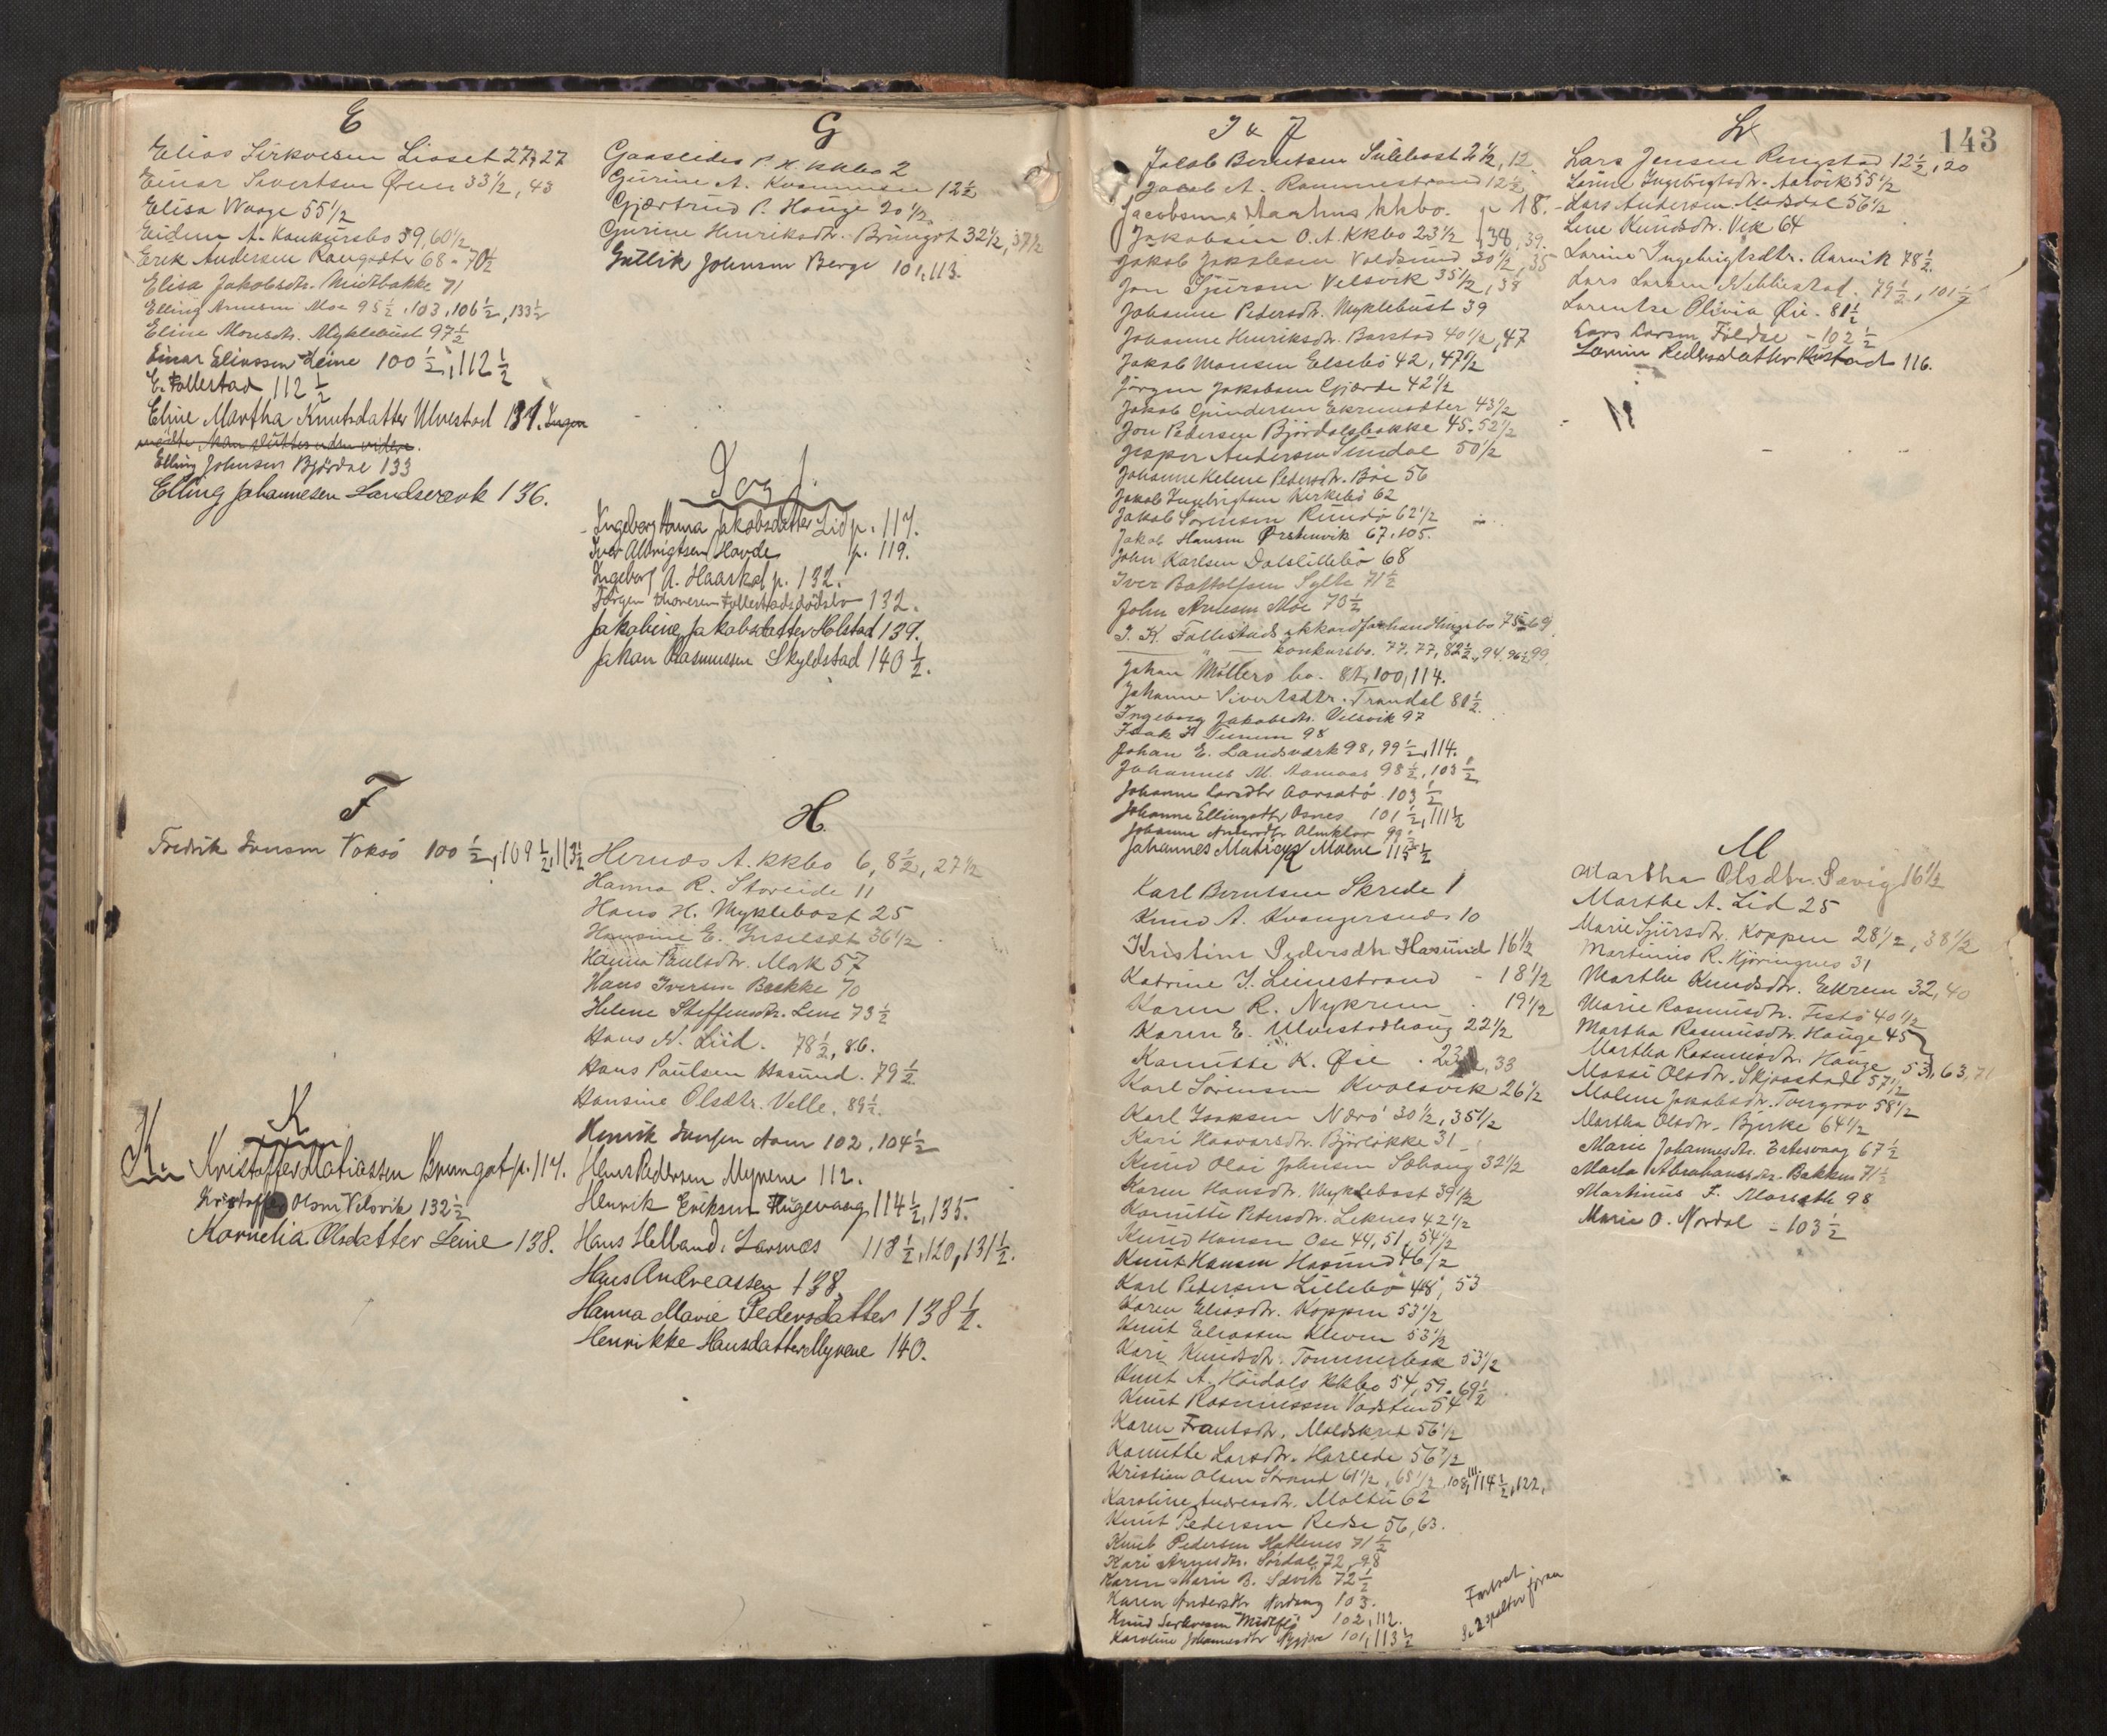 E
Elias Sirkvesen Lisset 27, 27
Einar Sivertsen Øren 33 1/2, 43
Elisa Waage 55 1/2
Eidem A. Konkursbo 59, 60 1/2
Erik Andersen 68 - 70 1/2
Elisa Jakobsdtr. Midtbakke 71
Elling Arnesen Moe 95 1/2, 103, 106 1/2, 133 1/2
Eline Monsdtr. Myklebust 97 1/2
Einar Eliassen Leine 100 1/2, 112 1/2
E. Follestad 112 1/2
Eline Martha Knutsdatter Ulvestad 131. Ingen
Elling Johnsen Bjørdal 133
Elling Johannesen Landsverk 136.
F
Fredrik Jensen Voksø 100 1/2, 109 1/2, 113 1/2
K
K. Kristoffer Matiassen Brungot p. 117.
Kristoffer Olsen Velsvik 132 1/2
Kornelia Olsdatter Leine 138.
G
Gaaseides P. H. kkbo 2
Gurine A. 12 1/2
Gjærtrud P. Hauge 20 1/2
Gurine Henriksdtr. Brungot 32 1/2, 37 1/2
Gullik Johnsen Berge 101, 113.
I og J.
Ingeborg Hanna Jakobsdatter Lid p. 117.
Iver Albrigtsen Havde p. 119.
Ingeborg A. Haaskal p. 132.
Jørgen Thoresen Follestads dødsbo 132.
Jakobine Jakobsdatter Holstad 139.
Johan Rasmussen Skyldstad 140 1/2.
H.
Hernæs A. kkbo 6, 8 1/2, 27 1/2
Hanna R. Storeide 11
Hans H. Myklebost 25
Hansine E. 36 1/2
Hanna Paulsdtr. Mork 57
Hans Iversen Bakke 70
Helene Steffensdtr. Lene 73 1/2
Hans N. Liid. 78 1/2, 86.
Hans Paulsen Hasund. 79 1/2
Hansine Olsdtr. Velle. 89 1/2.
Henrik Jensen Aam 102, 104 1/2
Hans Pedersen Myrene 112.
Henrik Eriksen 114 1/2, 135.
Hans Helland, Larsnæs 118 1/2, 120, 131 1/2.
Hans Andreassen 138.
Hanna Marie Pedersdatter 138 1/2.
Henrikke Hansdatter Myrene 140.
I & J
Jakob Berntsen Sulebost 2 1/2, 12
Jakob A. Rammestrand 12 1/2
Jacobsen & Aarhus kkbo. p 18.
Jakobsen O. A. kkbo 23 1/2, 38, 39.
Jakob Jakobsen Voldsund 30 1/2, 35
Jon Sjursen Velsvik 35 1/2, 38
Johanne Pedersdtr. Myklebust 39
Johanne Henriksdtr. Barstad 40 1/2, 47
Jakob Monsen Elsebø 42, 47 1/2
Jørgen Jakobsen Gjærde 42 1/2
Jakob Gundersen Ekremsæter 43 1/2
Jon Pedersen Bjørdalsbakke 45. 52 1/2
Jesper Andersen Sundal 50 1/2
Johanne Helene Pedersdtr. Bøe 56
Jakob Ingebrigtsen Kirkebø 62
Jakob Sørensen Rundø 62 1/2
Jakob Hansen Ørstenvik 67, 105.
John Karlsen Dalslillebø 68
Iver Bottolfsen Sylte 71 1/2
John Arnesen Moe 70 1/2
J. K. Follestads akkordforhandlingsbo 75 69
— " — konkursbo. 77, 77, 82 1/2, 94, 96 1/2, 99
Johan Møllers bo. 81, 100, 114.
Johanne Sivertsdtr. Trandal 81 1/2.
Ingeborg Jakobsdtr. Velsvik 97
Isak 98
Johan E. Landsværk 98, 99 1/2, 114.
Johannes M. Aamaas 98 1/2, 103 1/2
Johanne Larsdtr Aarsætø 103 1/2
Johanne Ellingsdtr Osnes 101 1/2, 111 1/2
Johanne Almklov 99 1/2
Johannes Matias Moene 115 1/2
K
Karl Berntsen Skrede 1
Knud A. Kvangersnes 10
Kristine Pedersdtr Hasund 16 1/2
Katrine J. Leinestrand - 18 1/2
Karen R. Nykrem . 19 1/2
Karen E. Ulvestadhaug 22 1/2
Kanutte K. Øie . 23, 33
Karl Sørensen Kvalsvik 26 1/2
Karl Isaksen Nærø 30 1/2, 35 1/2
Kari Haavarsdtr. Bjørløkke 31
Knud Olai Johnsen Solhaug 32 1/2
Karen Hansdtr. Myklebost 39 1/2
Kanutte Pedersdtr. Leknes 42 1/2
Knud Hansen Ose 44, 51, 54 1/2
Knut Hansen Hasund 46 1/2
Karl Pedersen Lillebø 48, 53
Karen Eliasdtr. Koppen 53 1/2
Knut Eliassen Kleven 53 1/2
Kari Knudsdtr. 53 1/2
Knut A. Høidals kkbo 54, 59. 69 1/2
Knut Rasmussen Vadsten 54
Karen Frantsdtr. Moldskred 56 1/2
Kanutte Larsdtr. Hareide 56 1/2
Kristian Olsen Strand 61 1/2, 68 1/2, 108, 111, 114 1/2, 122,
Karoline Andreasdtr. Moltu 62
Knut Pedersen Redse 56, 63.
Knut Pedersen Hatlenes 71 1/2
Kari Arnesdtr. Sørdal 72, 98
Karen Marie B. Sævik 72 1/2
Karen Andersdtr Nordang 103.
Knud Sirkvesen Midtflø 102, 112.
Karoline Johannesdtr 101, 113 1/2
Fortsat
Se 2 spalter foran
L
143
Lars Jensen Ringstad 12 1/2, 20
Larine Ingebrigtsdtr. Aarvik 55 1/2
Lars Andersen Mosdal 56 1/2
Lene Knudsdtr. Vik 64
Larine Ingebrigtsdtr. Aarvik 78 1/2.
Lars Larsen 79 1/2, 101 1/2
Larentse Olivia Øie. 81 1/2
Lars Larsen Foldse - 102 1/2
Larine Pedersdatter Rustad 116.
M
Martha Olsdtr. Sævig 16 1/2
Marthe A. Lid 25
Marie Sjursdtr. Koppen 28 1/2, 38 1/2
Martinius R. Hjøringnes 31
Marthe Knudsdtr. Ekrem 32, 40
Marie Rasmusdtr. Festø 40 1/2
Martha Rasmusdtr. Hauge 45
Martha Rasmusdtr. Hauge 53, 63, 71
Massi Olsdtr. Skjaastad 57 1/2
Malene Jakobsdtr. Tvergrov 58 1/2
Martha Olsdtr. Bjerke 64 1/2
Marie Johannesdtr. Eahsvaag 67 1/2
Marta Abrahamsdtr. Bakken 71 1/2
Martinus F. 98
Marie O. Nordal - 103 1/2